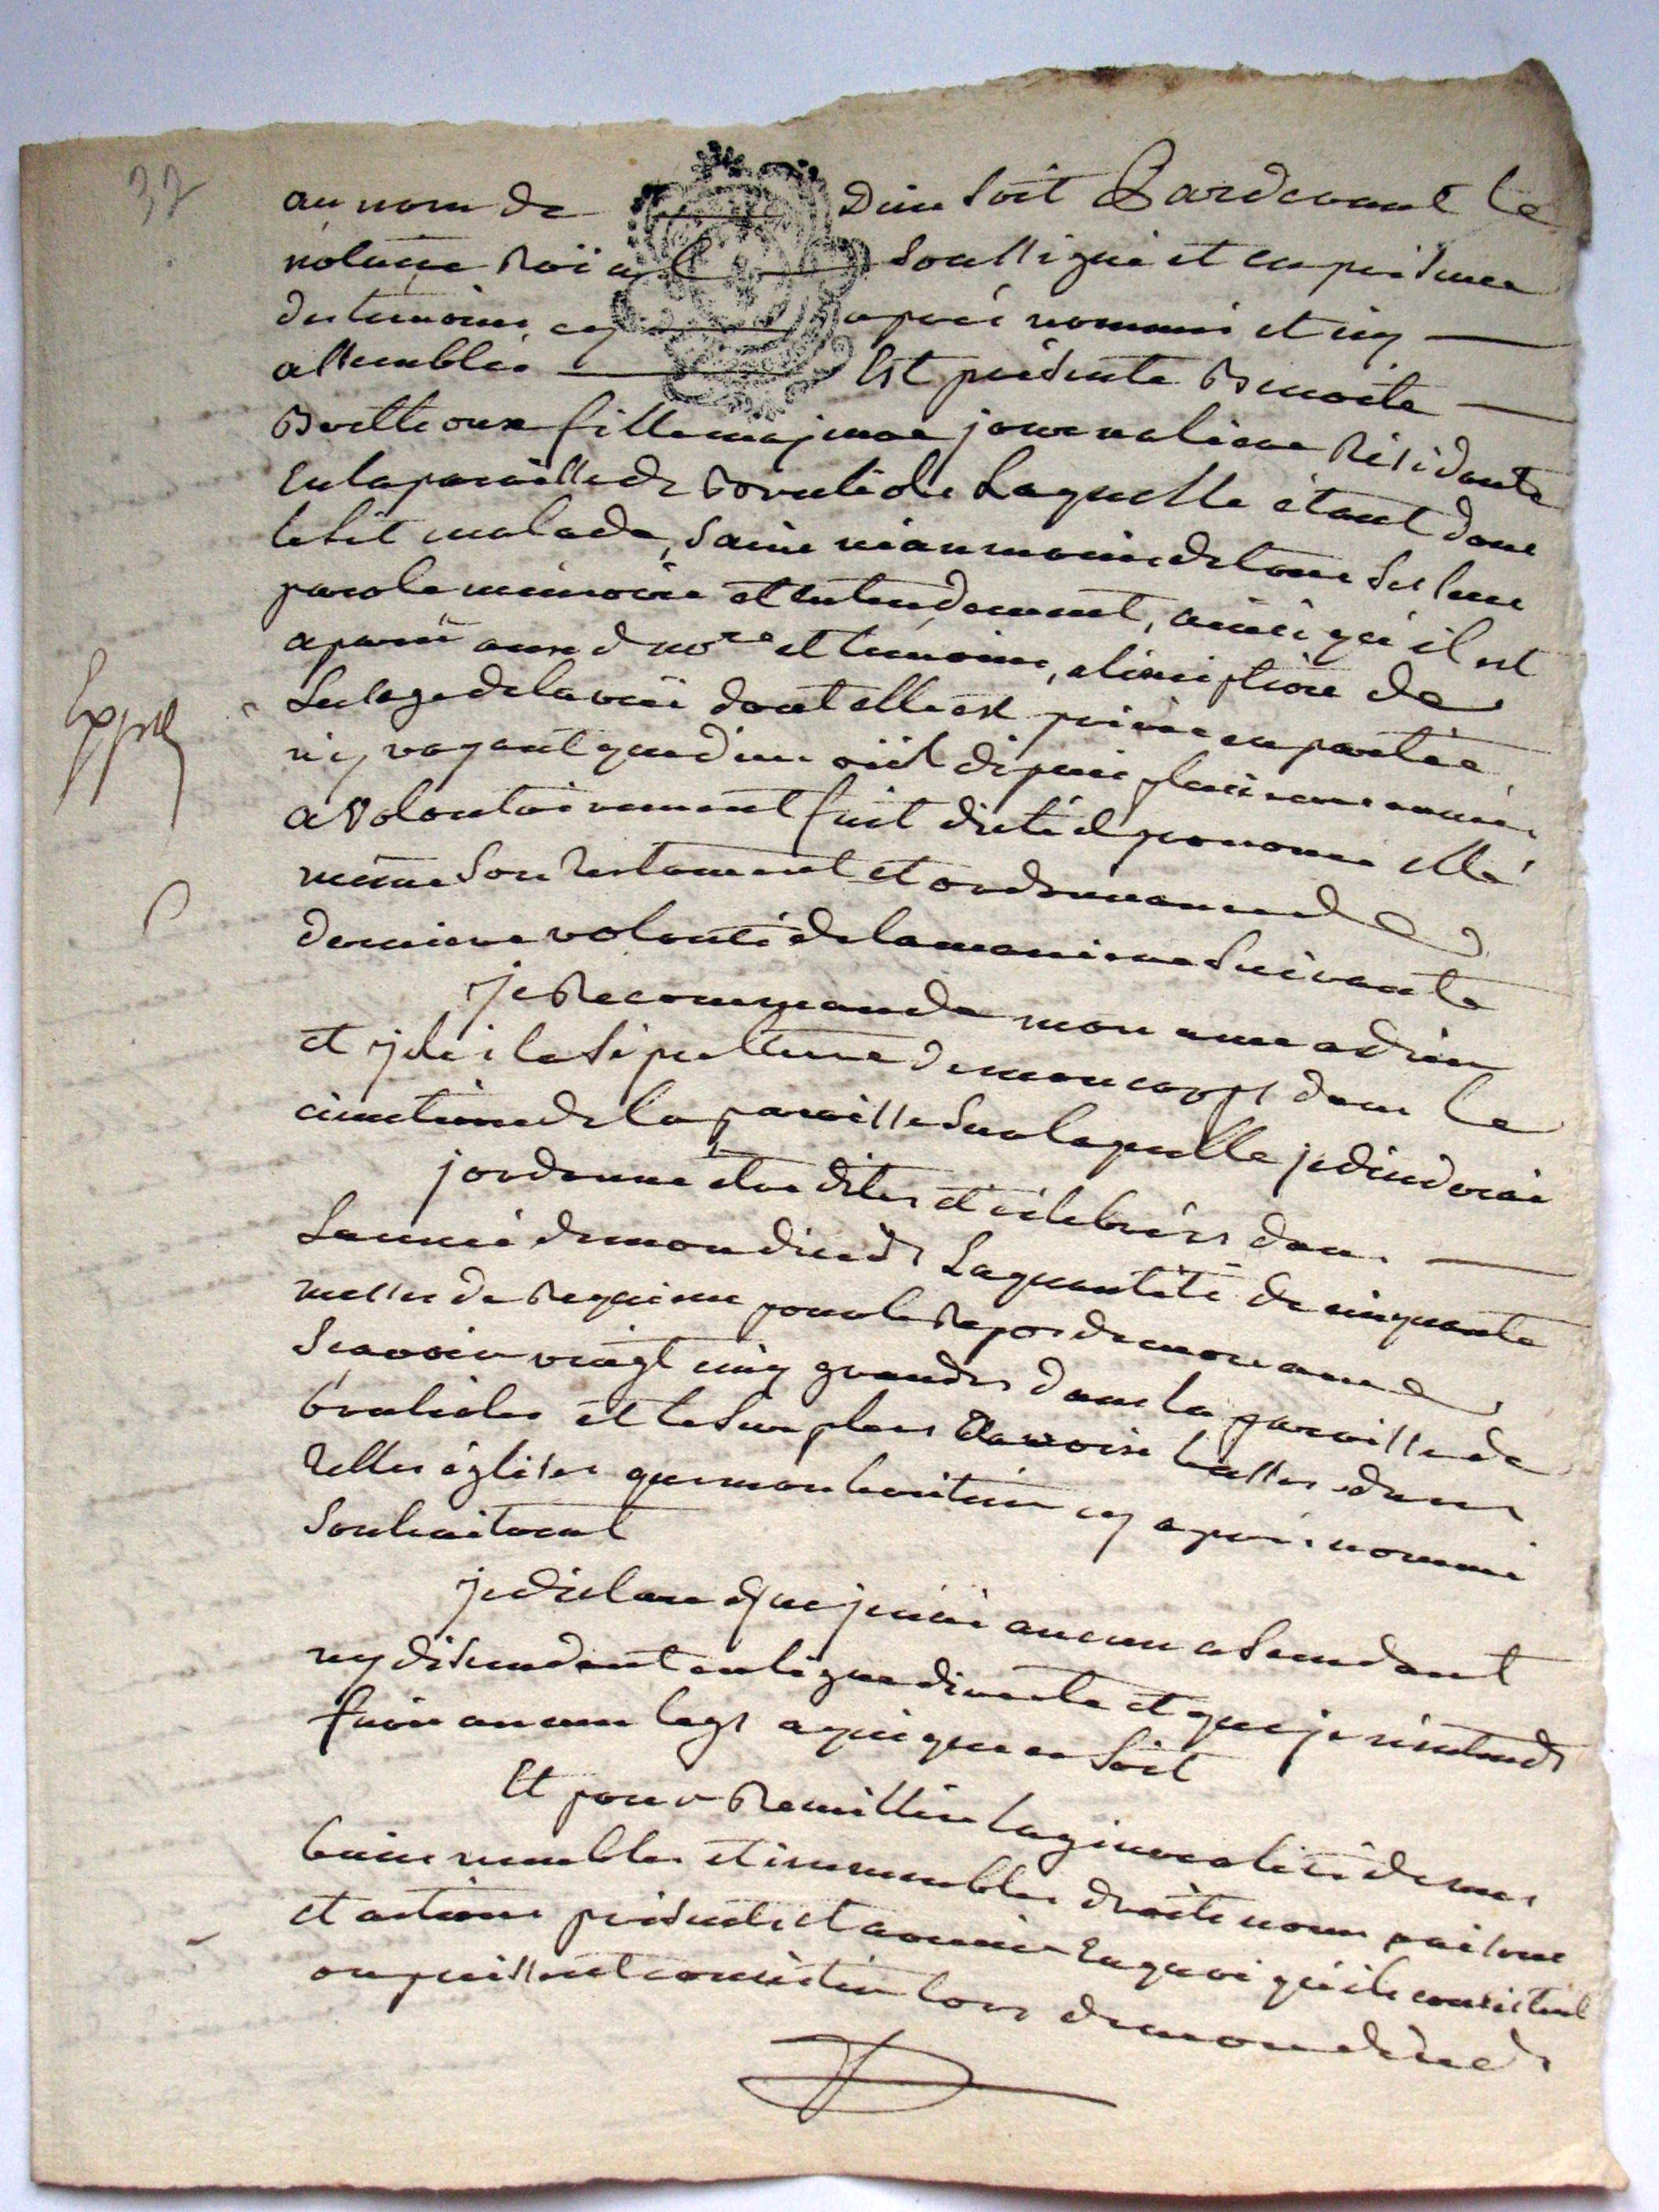 37
au nom de Dieu soit Pardevant le
notaire Roïal soussigné et en présence
des temoins cy après nommés et icy
assemblés Est présente Benoite
fille majeure journaliere Résidante
En la paroisse de Laquelle étant dans
le lit malade, saine néanmoins de tous ses sens
parole mémoire et entendement, ainsi qu'il est
aparu auxd no.re et témoins, a l'exception de
l'usage de la vuë dont elle est privée en partie
n'y voyant que d'un oüil depuis plusieurs années
a volontairement fait dicté et prononcé elle
même son Testament et ordonnance de
derniere volonté de la maniere suivante
je Recommande mon ame a dieu
et j'élis la sépulture de mon corps dans le
cimetiere de la paroisse sur laquelle je décederai
j'ordonne etre dites et célébrées dans
L'année de mon décèds La quantité de cinquante
messes de Requiem pour le Repos de mon ame
Sçavoir vingt cinq grandes dans la paroisse de
et le surplus basses dans
Telles églises que mon heritier cy après nommé
souhaiterat
je déclare que je n'ai aucun ascendant
ny déscendant en ligne directe et que je n'entends
faire aucun legs a qui que ce soit
Et pour Remettre la généralité de mes
biens meubles et immeubles droits noms raisons
et actions présents et avenir En quoi qu'ils consistent
ou puissent consister lors de mon décèds